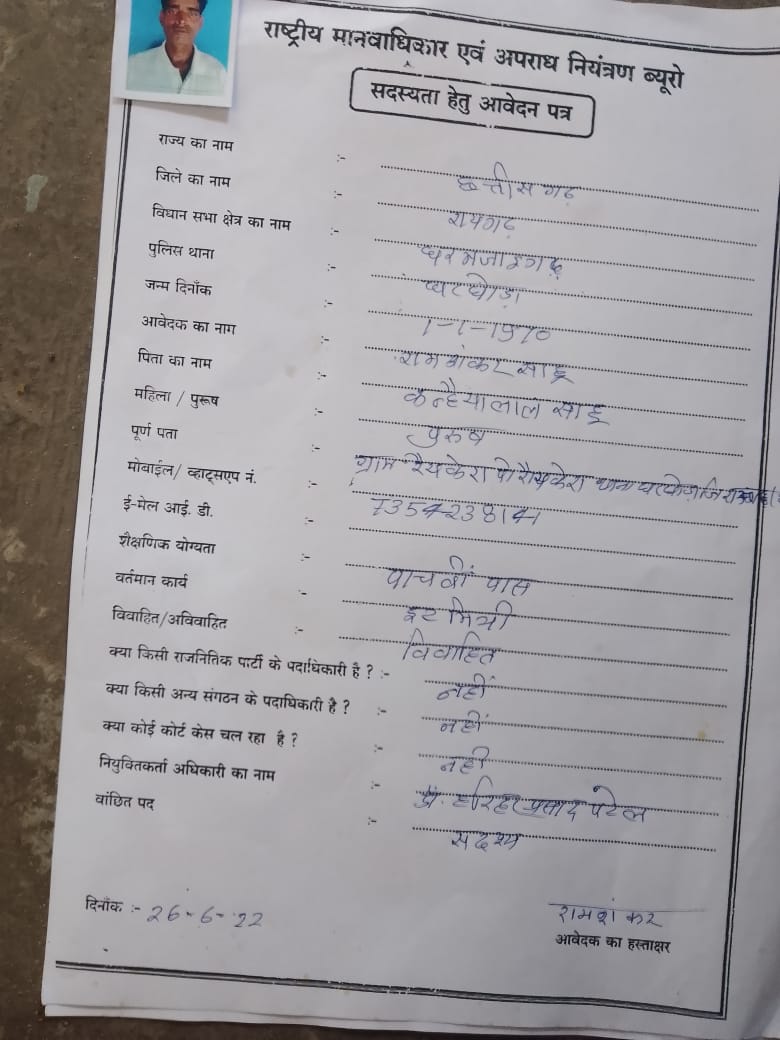 राष्ट्रीय मानवाधिकार एवं अपराध नियंत्रण ब्यूरो
सदस्यता हेतु आवेदन पत्र
राज्य का नाम :- छत्तीसगढ़
जिले का नाम :- रायगढ़
विधान सभा क्षेत्र का नाम :- धरमजाइगढ़
पुलिस थाना :-
जन्म दिनाँक :- 1-1-1970
आवेदक का नाग :- रामशंकर साहू
पिता का नाम :- कन्हैयालाल साहू
महिला / पुरूष :- पुरुष
पूर्ण पता :- ग्राम रैयकेरा पो रैयकेरा थाना
मोबाईल/ व्हाट्सएप नं. :- 7354238141
ई-मेल आई. डी. :-
शैक्षणिक योग्यता :- पाचवीं पास
वर्तमान कार्य :- इट मिस्त्री
विवाहित/अविवाहित :- विवाहित
क्या किसी राजनितिक पार्टी के पदाधिकारी है ? :- नहीं
क्या किसी अन्य संगठन के पदाधिकारी है ? :- नहीं
क्या कोई कोर्ट केस चल रहा है ? :- नही
नियुक्तिकर्ता अधिकारी का नाम :- हरिहर प्रसाद पटेल
वांछित पद :- सदश्य
दिनाँक :- 26-6-22
रामशंकर
आवेदक का हस्ताक्षर